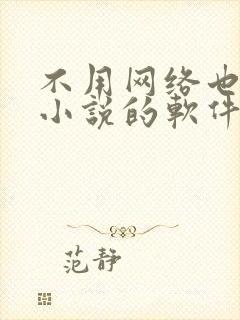 不用网络也
小説的軟件
范静